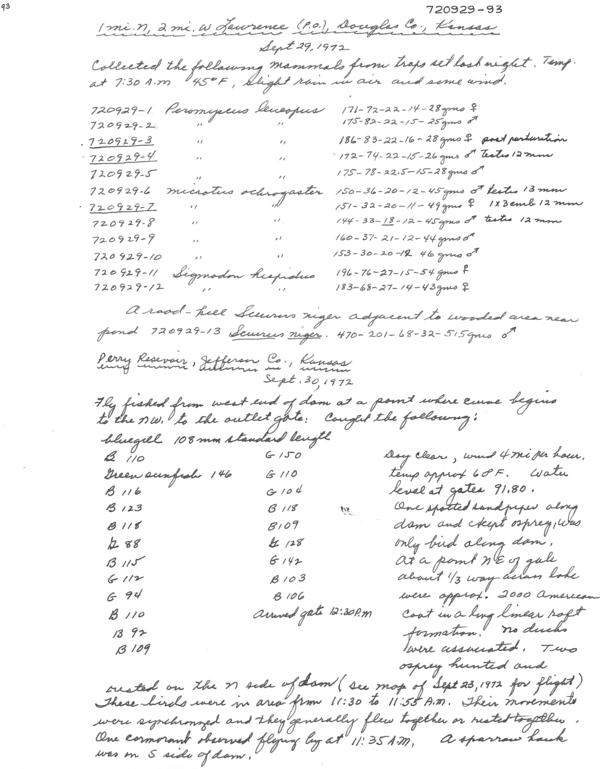 93
720929-93
1 mi. N, 2 mi. W Lawrence (P.O.), Douglas Co., Kansas
Sept 29, 1972
Collected the following mammals from traps set last night. Temp.
at 7:30 A.M 45°F, slight rain in air and some wind.
720929-1 Peromyscus leucopus 171-72-22-14-28gms ♀
720929-2 " " 175-82-22-15-25gms ♂
720929-3 " " 186-83-22-16-28gms ♀ post parturition
720929-4 " " 172-74-22-15-26gms ♂ Testes 12 mm
720929-5 " " 175-78-22.5-15-28gms ♂
720929-6 microtus ochrogaster 150-36-20-12-45gms ♂ testes 13 mm
720929-7 " " 151-32-20-11-49gms ♀ 1x3 emb 12 mm
720929-8 " " 144-33-18-12-45gms ♂ testes 12 mm
720929-9 " " 160-37-21-12-44gms ♂
720929-10 " " 153-30-20-12 46gms ♂
720929-11 Sigmodon hispidus 196-76-27-15-54gms ♀
720929-12 " " 183-68-27-14-43gms ♀
A road-kill Sciurus niger adjacent to wooded area near
pond 720929-13 Sciurus niger. 470-201-68-32-515gms ♂
Perry Resevoir, Jefferson Co., Kansas
Sept. 30, 1972
Fly fished from west end of dam at a point where curve begins
to the NW. to the outlet gate: Caught the following:
bluegill 108mm standard length
B 110 G 150 Day clear, wind 4 mi per hour.
Green sunfish 146 G 110 temp approx 68 F. Water
B 116 G 104 level at gates 91,80.
B 123 B 118 One spotted sandpiper along
B 118 B109 dam and except osprey, was
G 88 G 128 only bird along dam.
B 115 G 142 At a point NE of gate
G 112 B 103 about 1/3 way across lake
G 94 B 106 were approx. 2000 American
B 110 Arrived gate 12:30P.M coot in a long linear raft
B 92 formation. No ducks
B 109 were associated. Two
osprey hunted and
rested on the N side of dam (see map of Sept 23, 1972 for flight)
These birds were in area from 11:30 to 11:55 A.M. Their movements
were synchronized and they generally flew together or rested together.
One cormorant observed flying by at 11:35 A.M. A sparrow hawk
was on S side of dam.